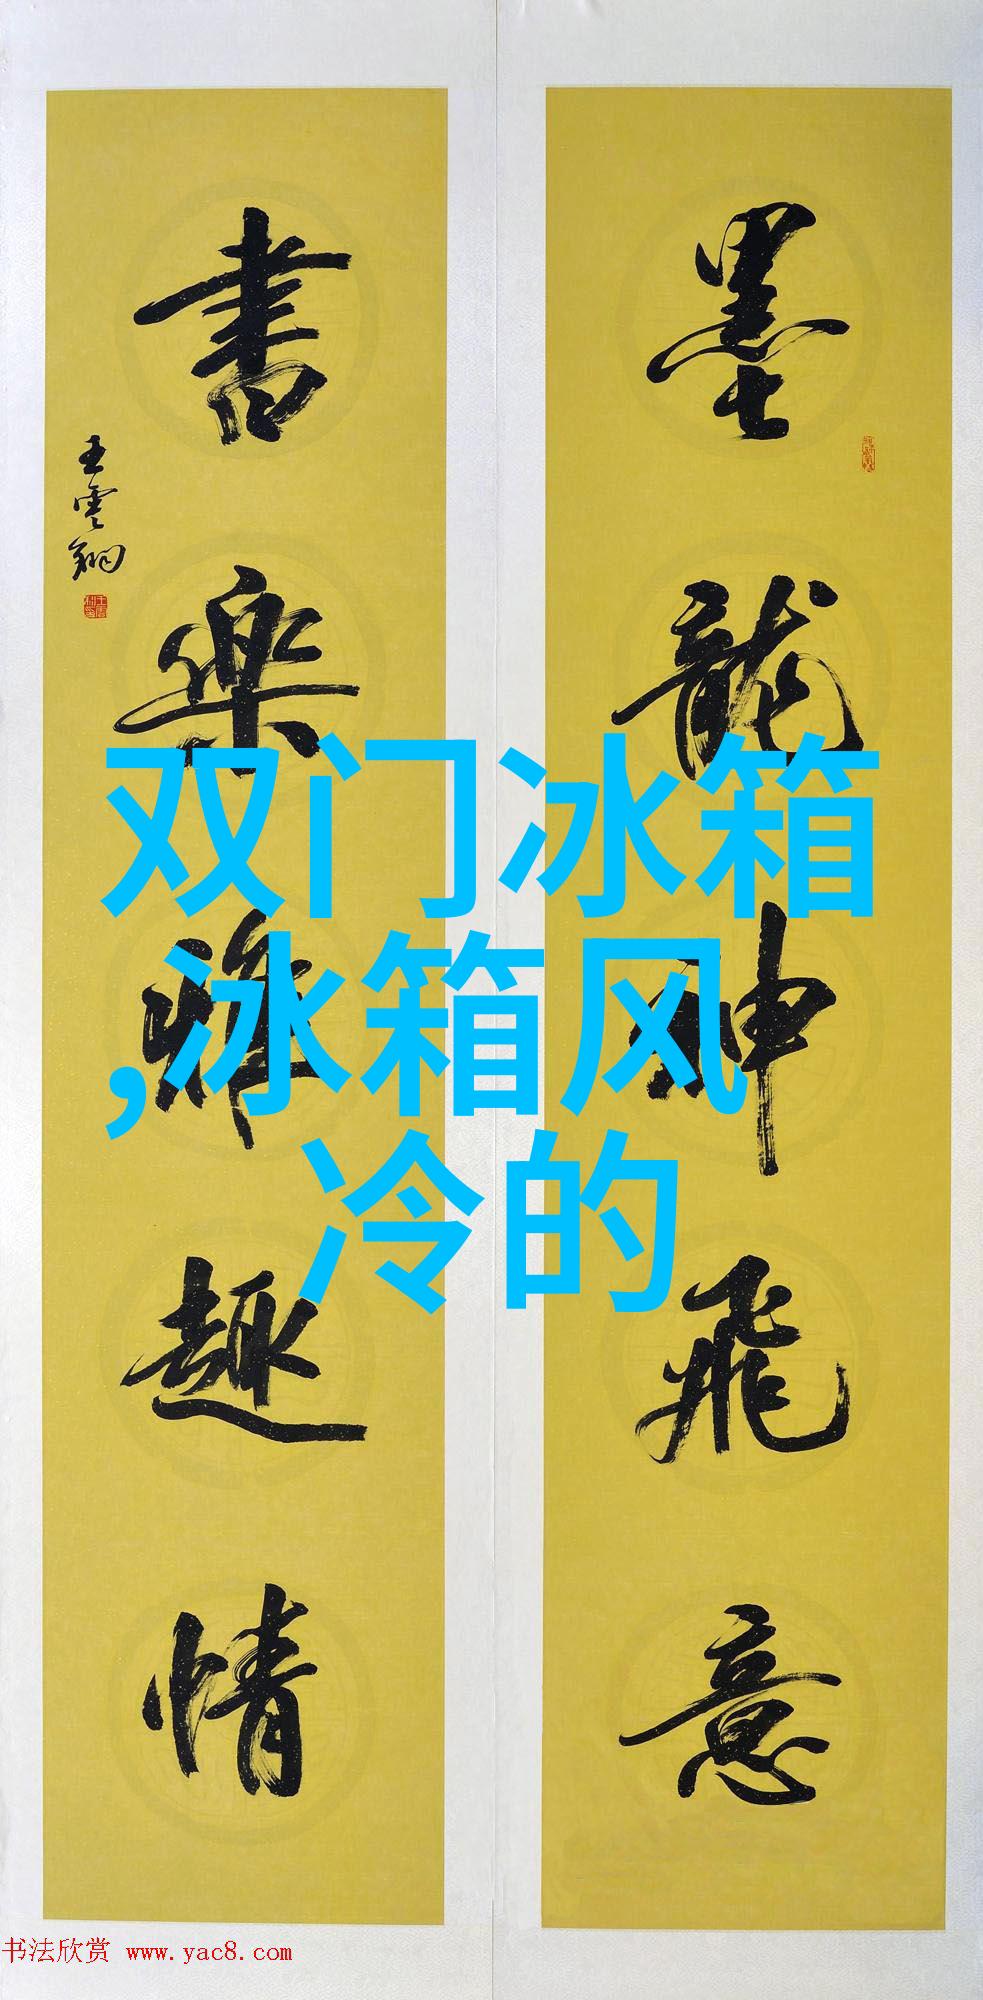 墨龍神飛意
書樂雅趣情
王雲翔
双门冰箱
,冰箱风
冷的
书法欣赏 www.yac8.com